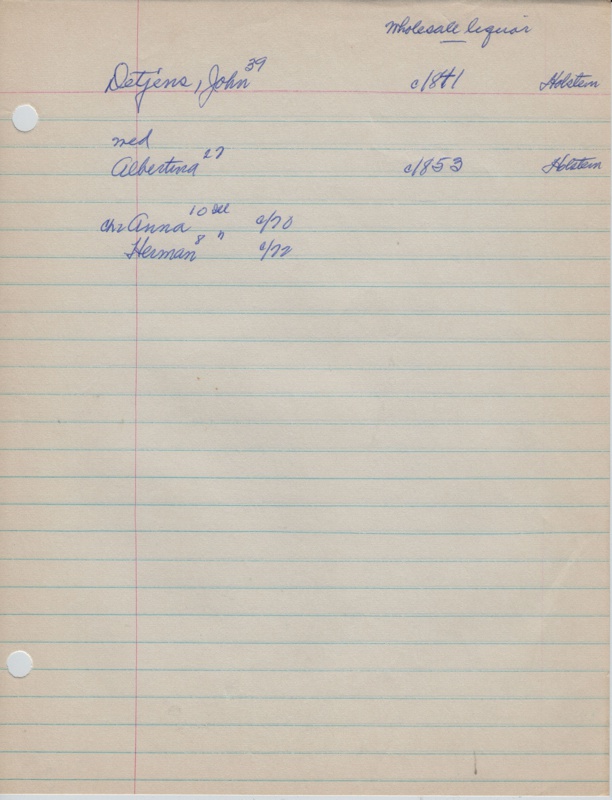 Wholesale liquor
Detjens, John 39 c/841 Holstein
med
Albertina 27 c/853 Holstein
chr Anna 10 Ill c/70
Herman 8 " c/72